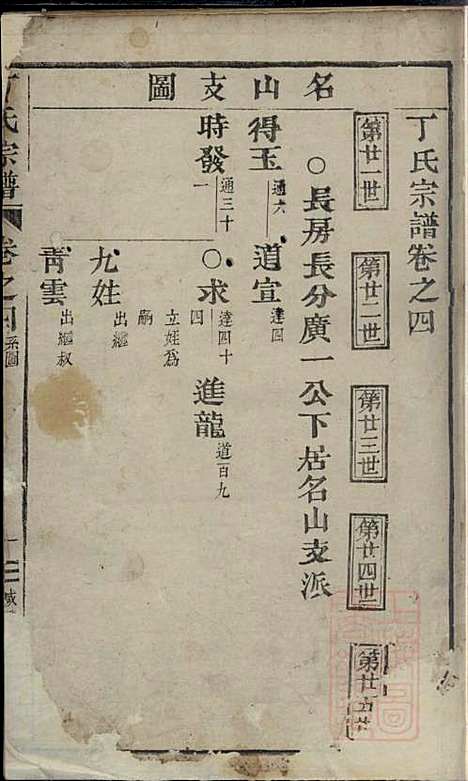 丁氏宗譜卷之四
第廿一世
第廿二世
第廿三世
第廿四世
第廿
名山支圖
○長房長分廣一公下居名山支派
得玉 通六
道宣 達四
時發 通三十一
○求 達四十四
進龍 道百九
立姓爲嗣
尤姓 出繼
青雲 出繼叔
丁氏宗譜
卷之四 系圖
一